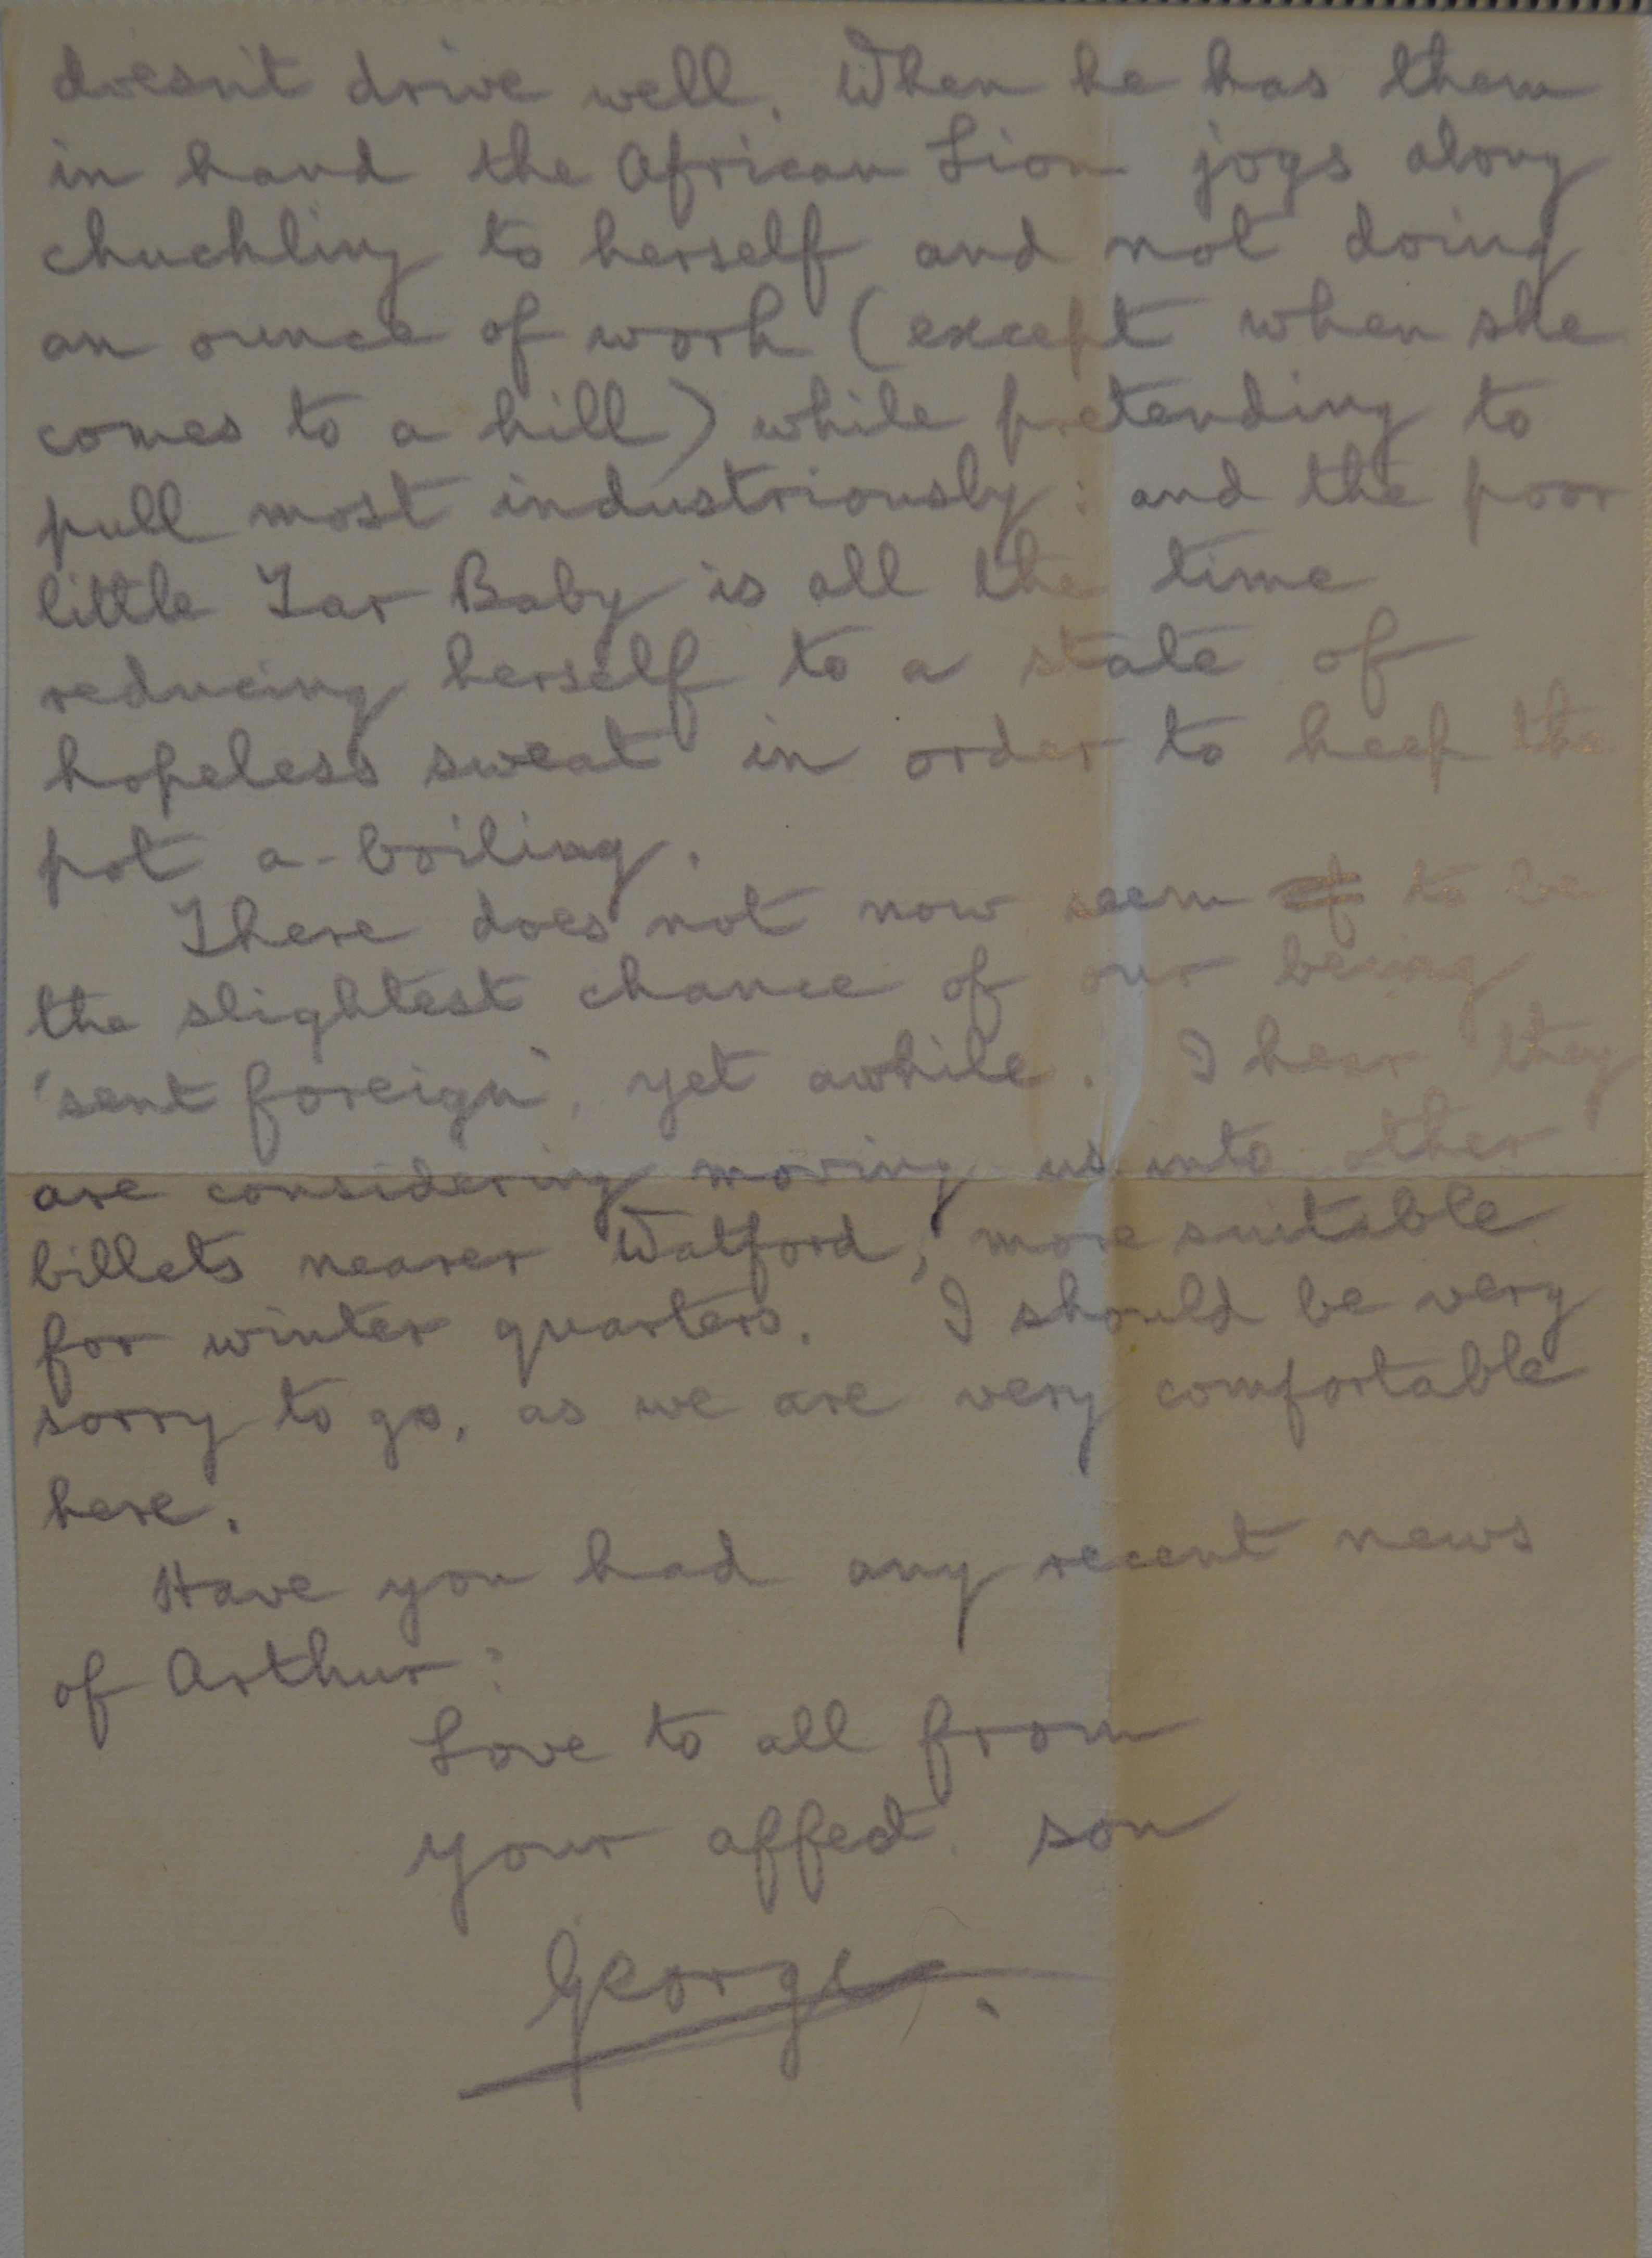 doesn't drive well. When he has them
in hand the African Lion jogs along
chuckling to herself and not doing
an ounce of work (except when she
comes to a hill) while pretending to
pull most industriously: and the poor
little Tar Baby is all the time
reducing herself to a state of
hopeless sweat in order to keep the
pot a-boiling.
There does not now seem to be
the slightest chance of our being
'sent foreign', yet awhile. I hear they
are considering moving us into other
billets nearer Watford, more suitable
for winter quarters. I should be very
sorry to go, as we are very comfortable
here.
Have you had any recent news
of Arthur?
Love to all from
your affect. son
George.